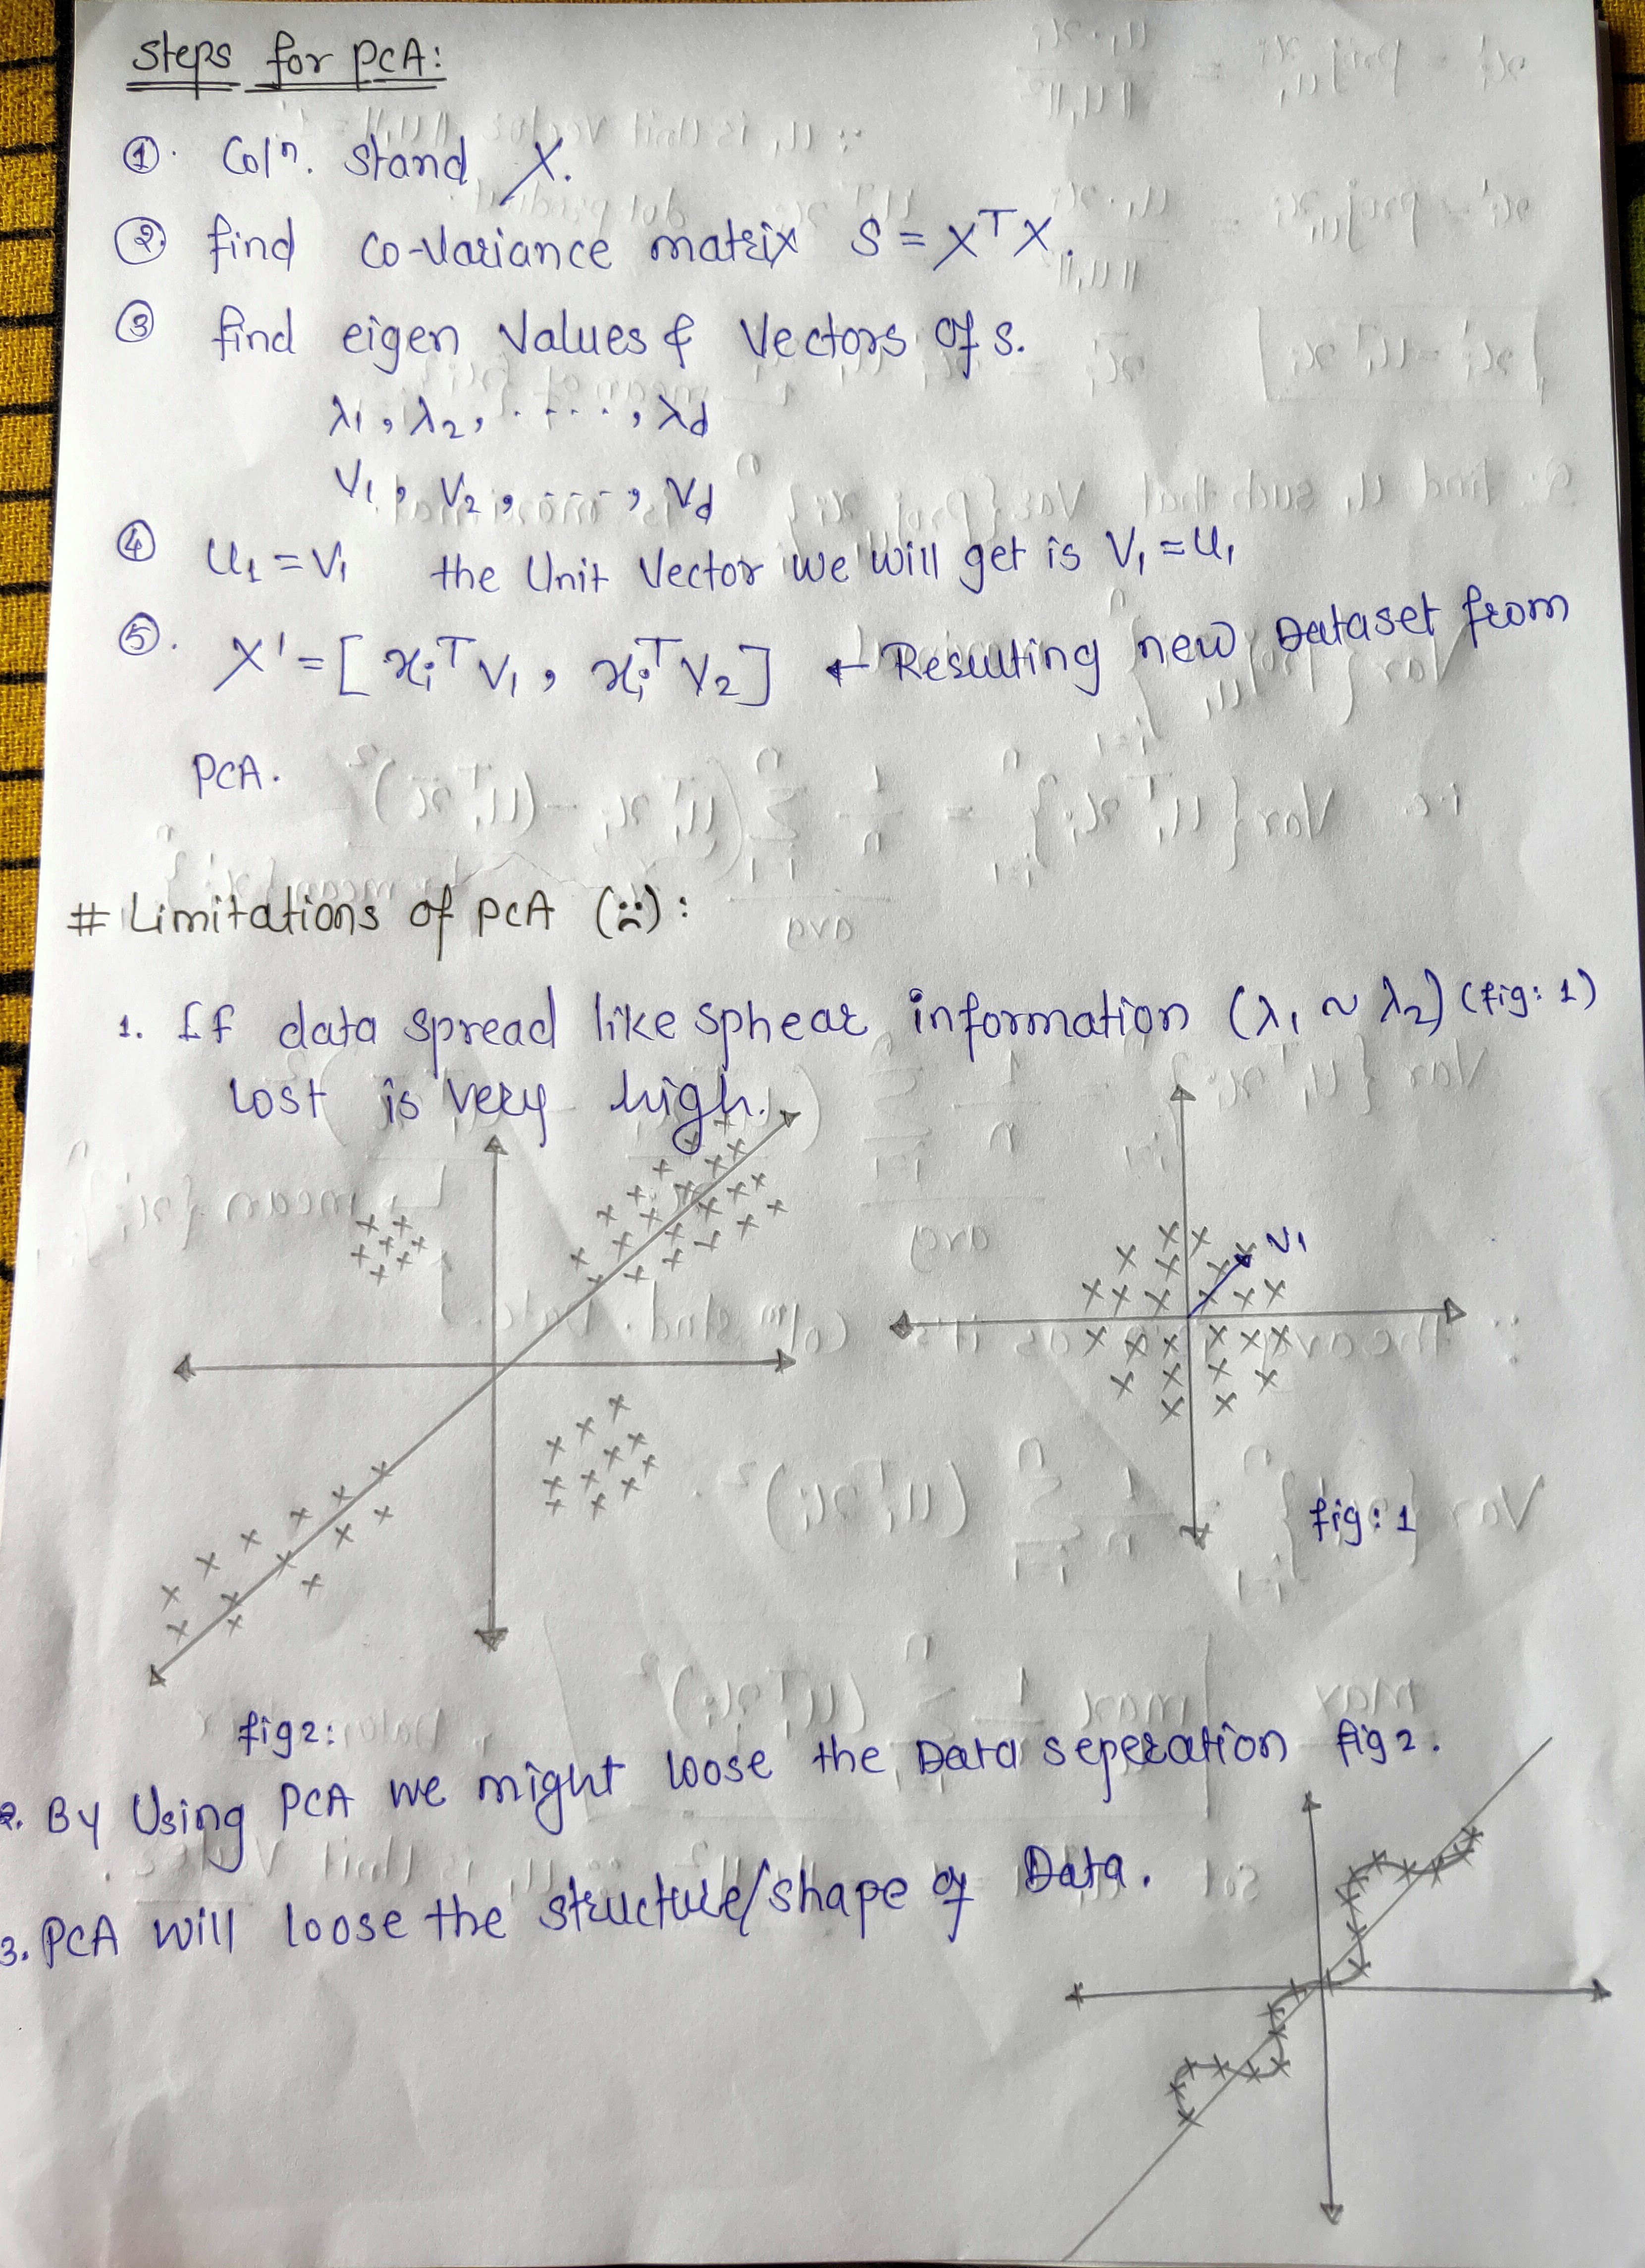 Steps for PCA:
①. Colⁿ. Stand X.
②. find co-variance matrix S = XᵀX.
③ find eigen Values & Vectors of S.
λ₁, λ₂, ....., λd
V₁, V₂, ....., Vd
④ U₁ = V₁ the Unit Vector we will get is V₁ = U₁
⑤. X' = [xᵢᵀV₁, xᵢᵀV₂] ← Resulting new Dataset from
PCA.
# Limitations of PCA (☹):
1. If data spread like sphear information (λ₁ ~ λ₂) (fig: 1)
lost is very high.
V1
fig: 1
fig 2:
2. By Using PCA we might loose the Data seperation fig 2.
3. PCA will loose the structure/shape of Data.